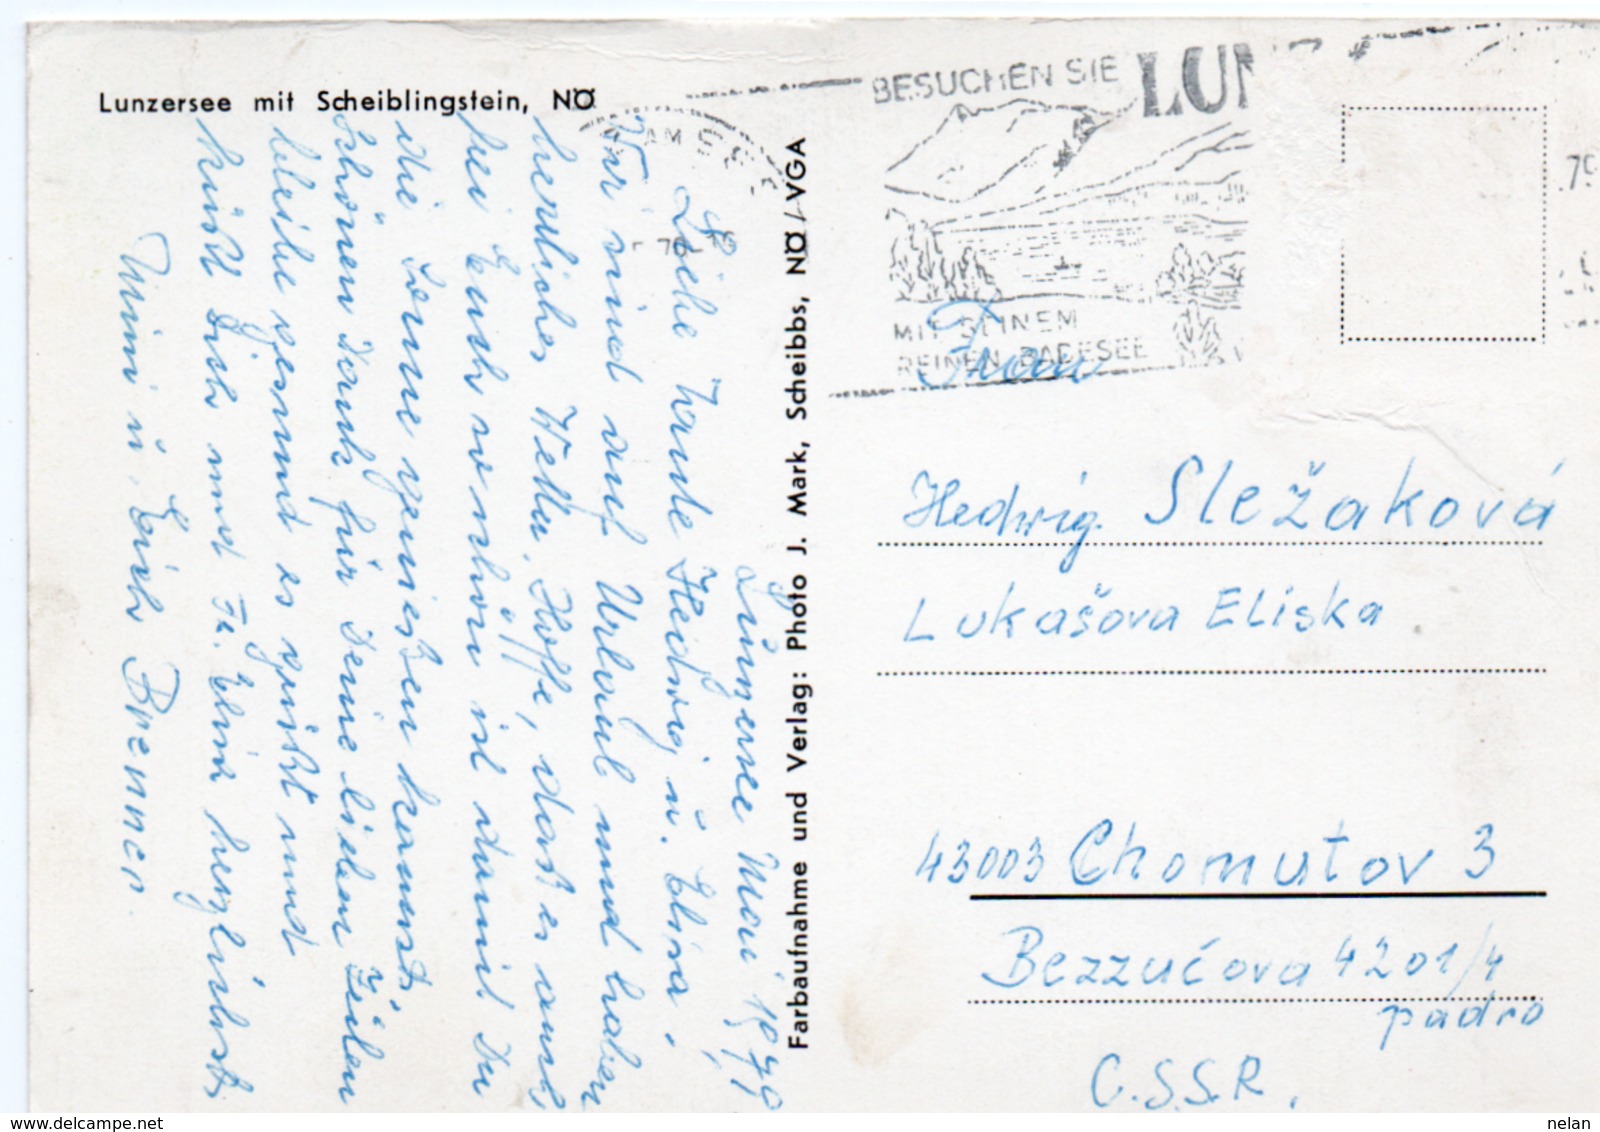 Lunzersee mit Scheiblingstein, NÖ
Lunzersee Mai 1979
Liebe Tante Hedwig u. Elisa,
Wir sind auf Urlaub und haben
herrliches Wetter. Hoffe, dass es auch
bei Euch so schön ist damit Du
die Sonne geniessen kannst.
Schönen Dank für Deine lieben Zeilen
bleibe gesund es grüsst und
küsst Dich und Fr. Elisa herzlichst
Mimi u. Erich Brenner
Farbaufnahme und Verlag: Photo J. Mark, Scheibbs, NÖ / VGA
AM SEE
BESUCHEN SIE LUNZ
MIT SEINEM
REINEN BADESEE
79
Frau
Hedwig Sležaková
Lukašova Eliska
43003 Chomutov 3
Bezzučova 4201/4
padro
Č.S.S.R.
delcampe.net
nelan